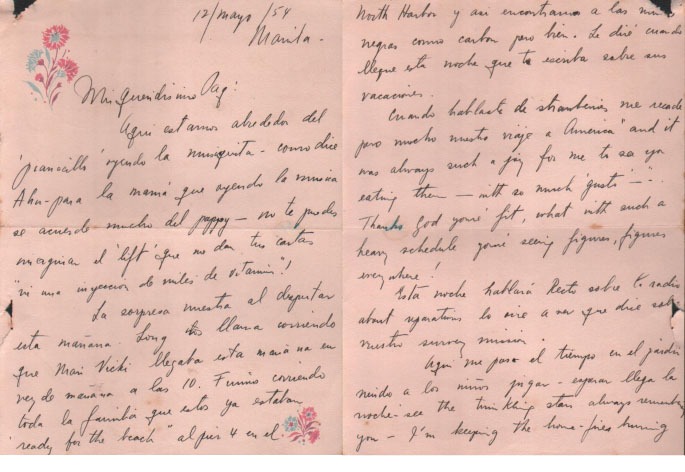 12/mayo/54
Manila-
Mi queridisimo Pag:
Aqui estamos alrededor del
"pianocillo" oyendo la musiquita - como dice
para la mamá que oyendo la musica
se acuerda mucho del pappy - no te puedes
imaginar el 'lift' que no dan tus cartas
"ni una inyeccion de miles de vitamin"!
La sorpresa nuestra al despertar
esta mañana. Long llama corriendo
que Mari Vicki llegaba esta mañana en
vez de mañana a las 10. Fuimos corriendo
toda la familia que estos ya estaban
"ready for the beach" al pier 4 en el
North Harbor y asi encontramos a las niñas
negras como carbon pero bien. Le diré cuando
llegue esta noche que te escriba sobre sus
vacaciones.
Cuando hablaste de strawberries me recordé
pero mucho nuestro viaje a America "and it
was always such a joy for me to see you
eating them - with so much 'gusto' -".
Thanks God you're fit, what with such a
heavy schedule you're seeing figures, figures
everywhere!
Esta noche hablará Recto sobre la radio
about reparations lo oire a ver que dice sobre
vuestro survey mission.
Aqui me paso el tiempo en el jardin
viendo a los niños jugar - esperan llega la
noche - see the twinkling stars always remembering
you - I'm keeping the home-fires burning